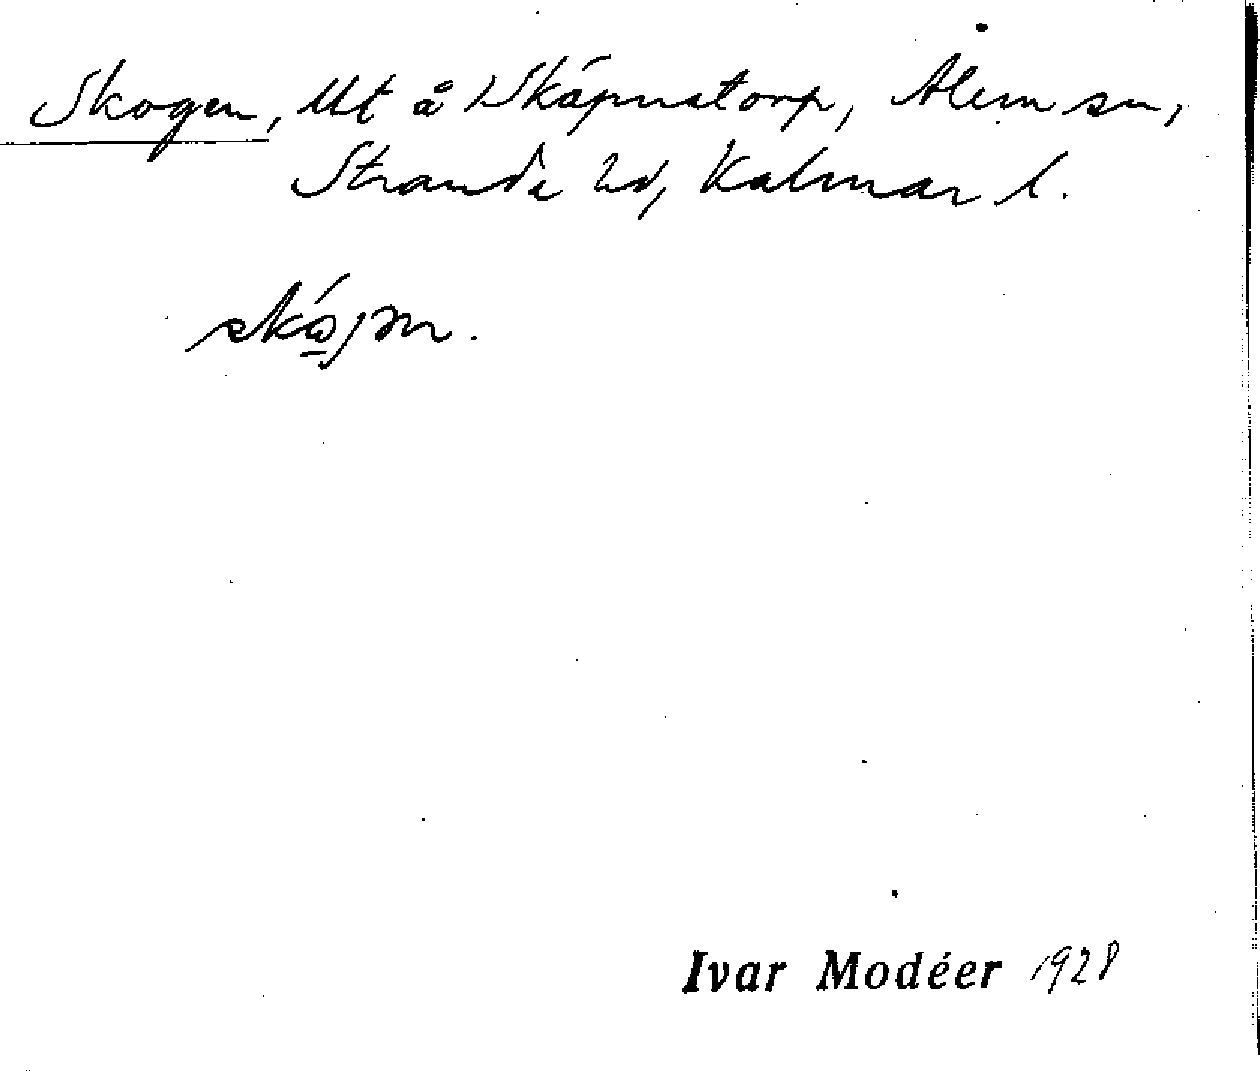 Skogen, Ut å Skápnatorp, Ålem sn,
Stranda hd, Kalmar l.
Ivar Modéer 1928